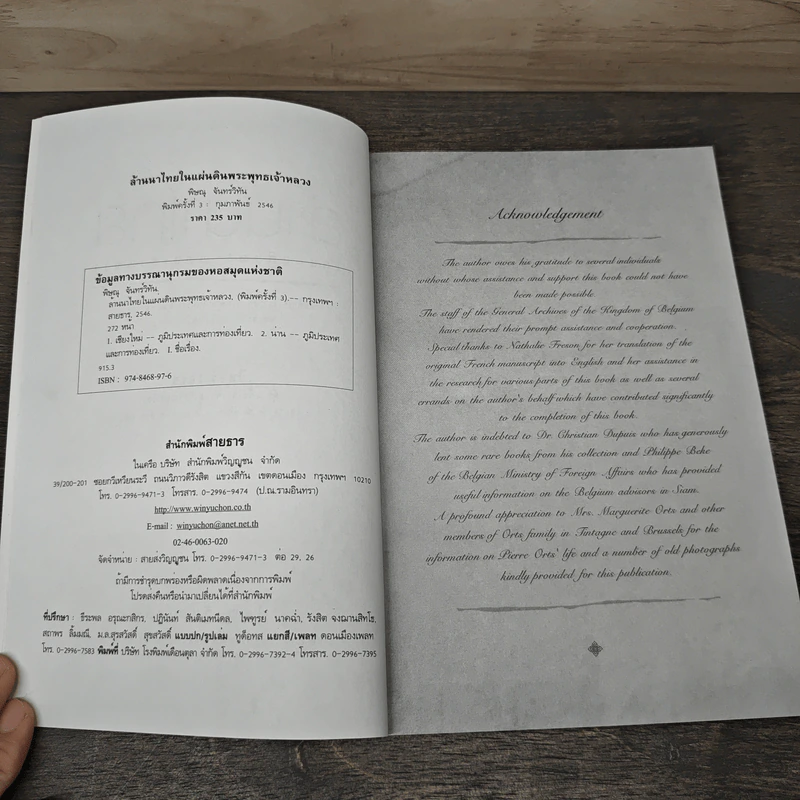 ล้านนาไทยในแผ่นดินพระพุทธเจ้าหลวง
พิษณุ จันทร์วิทัน
พิมพ์ครั้งที่ 3 : กุมภาพันธ์ 2546
ราคา 235 บาท
ข้อมูลทางบรรณานุกรมของหอสมุดแห่งชาติ
พิษณุ จันทร์วิทัน.
ล้านนาไทยในแผ่นดินพระพุทธเจ้าหลวง. (พิมพ์ครั้งที่ 3).-- กรุงเทพฯ :
สายธาร, 2546.
272 หน้า
1. เชียงใหม่ -- ภูมิประเทศและการท่องเที่ยว. 2. น่าน -- ภูมิประเทศ
และการท่องเที่ยว. I. ชื่อเรื่อง.
915.3
ISBN : 974-8468-97-6
สำนักพิมพ์สายธาร
ในเครือ บริษัท สำนักพิมพ์วิญญูชน จำกัด
39/200-201 ซอยกวีเหวียนระวี ถนนวิภาวดีรังสิต แขวงสีกัน เขตดอนเมือง กรุงเทพฯ 10210
โทร. 0-2996-9471-3 โทรสาร. 0-2996-9474 (ป.ณ.รามอินทรา)
http://www.winyuchon.co.th
E-mail : winyuchon@anet.net.th
02-46-0063-020
จัดจำหน่าย : สายส่งวิญญูชน โทร. 0-2996-9471-3 ต่อ 29, 26
ถ้ามีการชำรุดบกพร่องหรือผิดพลาดเนื่องจากการพิมพ์
โปรดส่งคืนหรือนำมาเปลี่ยนได้ที่สำนักพิมพ์
ที่ปรึกษา : ธีระพล อรุณะกสิกร, ปฏินันท์ สันติเมทนีดล, ไพฑูรย์ นาคฉ่ำ, รังสิต จงฌานสิทโธ,
สถาพร ลิ้มมณี, ม.ล.สุรสวัสดิ์ สุขสวัสดิ์ แบบปก/รูปเล่ม ทูดีอทส แยกสี/เพลท ดอนเมืองเพลท
โทร. 0-2996-7583 พิมพ์ที่ บริษัท โรงพิมพ์เดือนตุลา จำกัด โทร. 0-2996-7392-4 โทรสาร. 0-2996-7395
Acknowledgement
The author owes his gratitude to several individuals
without whose assistance and support this book could not have
been made possible.
The staff of the General Archives of the Kingdom of Belgium
have rendered their prompt assistance and cooperation.
Special thanks to Nathalie Freson for her translation of the
original French manuscript into English and her assistance in
the research for various parts of this book as well as several
errands on the author's behalf which have contributed significantly
to the completion of this book.
The author is indebted to Dr. Christian Dupuis who has generously
lent some rare books from his collection and Philippe Beke
of the Belgian Ministry of Foreign Affairs who has provided
useful information on the Belgium advisors in Siam.
A profound appreciation to Mrs. Marguerite Orts and other
members of Orts family in Tintagne and Brussels for the
information on Pierre Orts' life and a number of old photographs
kindly provided for this publication.